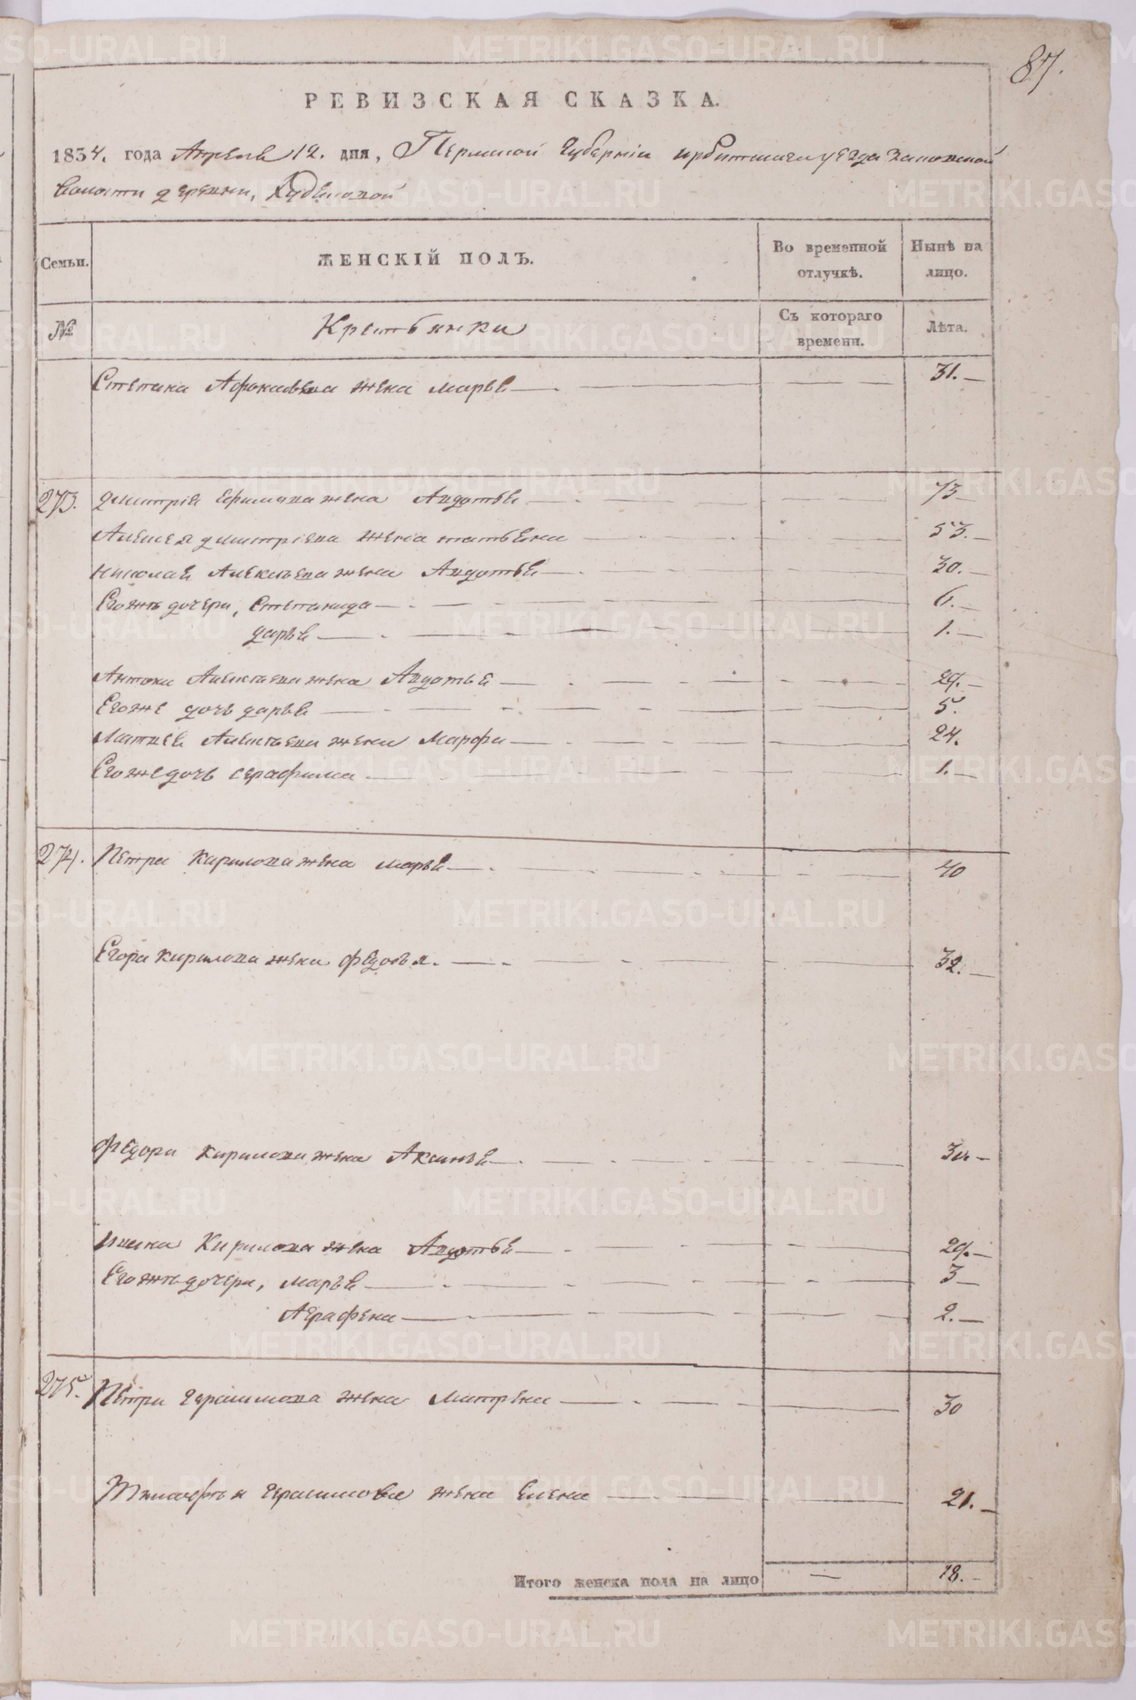 87.
РЕВИЗСКАЯ СКАЗКА.
1854. года Апреля 12. дня, Пермской Губернiи Ирбитскаго уезда
Волости деревни,
Семьи. ЖЕНСКIЙ ПОЛЪ. Во временной отлучкѣ. Нынѣ на лицо.
№ Крестьянки Съ котораго времени. Лѣта.
Степана жена Марья 31.
273. Дмитрiя Ефимова жена Авдотья 73
Алексея Дмитрiева жена Татьяна 53.
Николая Алексѣева жена Авдотья 30.
Егожъ дочери, Степанида 6.
Дарья 1.
Антона Алексѣева жена Авдотья 29.
Егоже дочь Дарья 5.
Матвея Алексѣева жена Марфа 24.
Егоже дочь Серафима 1.
274. Петра Карилова жена Марья 40
Егора Кирилова жена Федосья. 32.
Федора Кирилова жена Аксинья
Кирилова жена Авдотья 29.
Егожъ дочери, Марья 3
Аграфена 2.
275. Петра Герасимова жена Матрена 30
Тимофея Герасимова жена Елена 21.
Итого женска пола на лицо 18.
METRIKI.GASO-URAL.RU